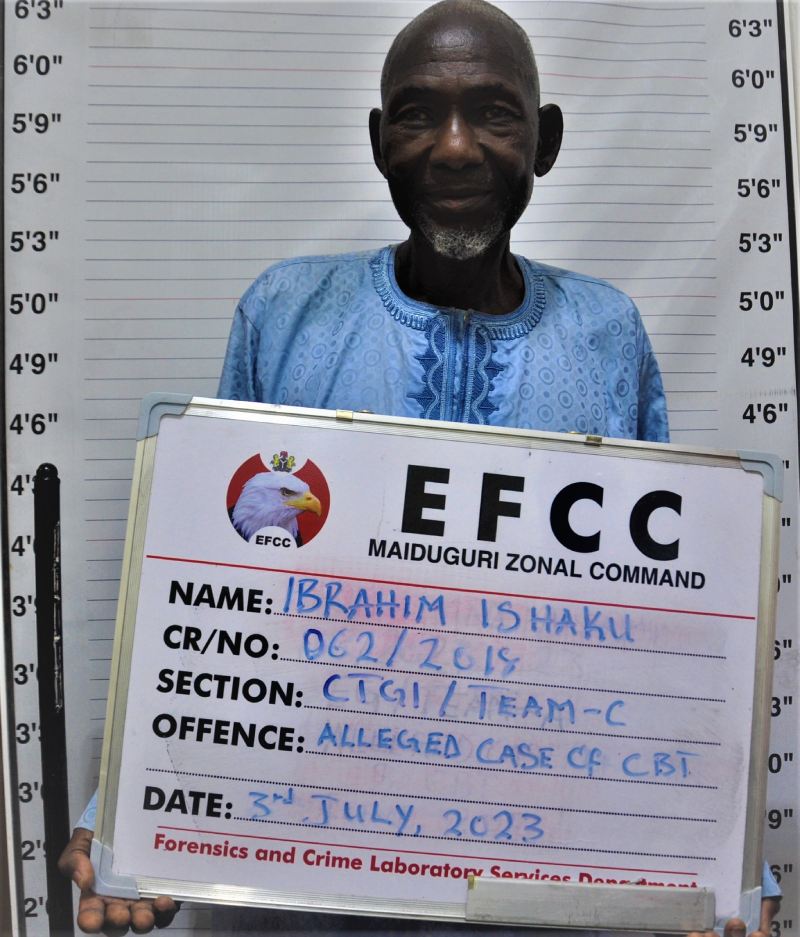 6'3"
6'0"
5'9"
5'6"
5'3"
5'0"
4'9"
4'6"
6'3"
6'0"
5'9"
5'6"
5'3"
5'0"
4'9"
4'6"
EFCC
EFCC
MAIDUGURI ZONAL COMMAND
NAME: IBRAHIM ISHAKU
CR/NO: 062/2018
SECTION: CTGI/TEAM-C
OFFENCE: ALLEGED CASE OF CBT
DATE: 3rd JULY, 2023
Forensics and Crime Laboratory Services Department